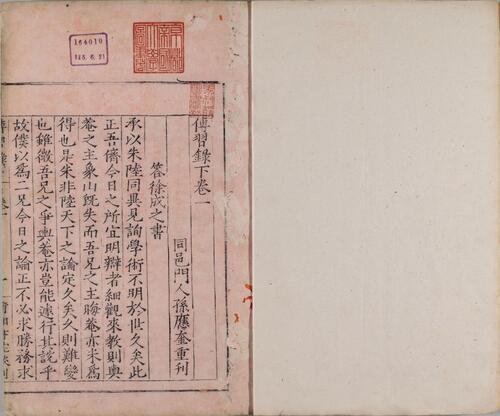 傳習錄下卷一
同邑門人孫應奎重刊
答徐成之書
承以朱陸同異見詢學術不明於世久矣此
正吾儕今日之所宜明辯者細觀來教則輿
菴之主象山既失而吾兄之主晦菴亦未為
得也是朱非陸天下之論定久矣久則難變
也雖微吾兄之爭輿菴亦豈能遽行其說乎
故僕以為二兄今日之論正不必求勝務求
164010